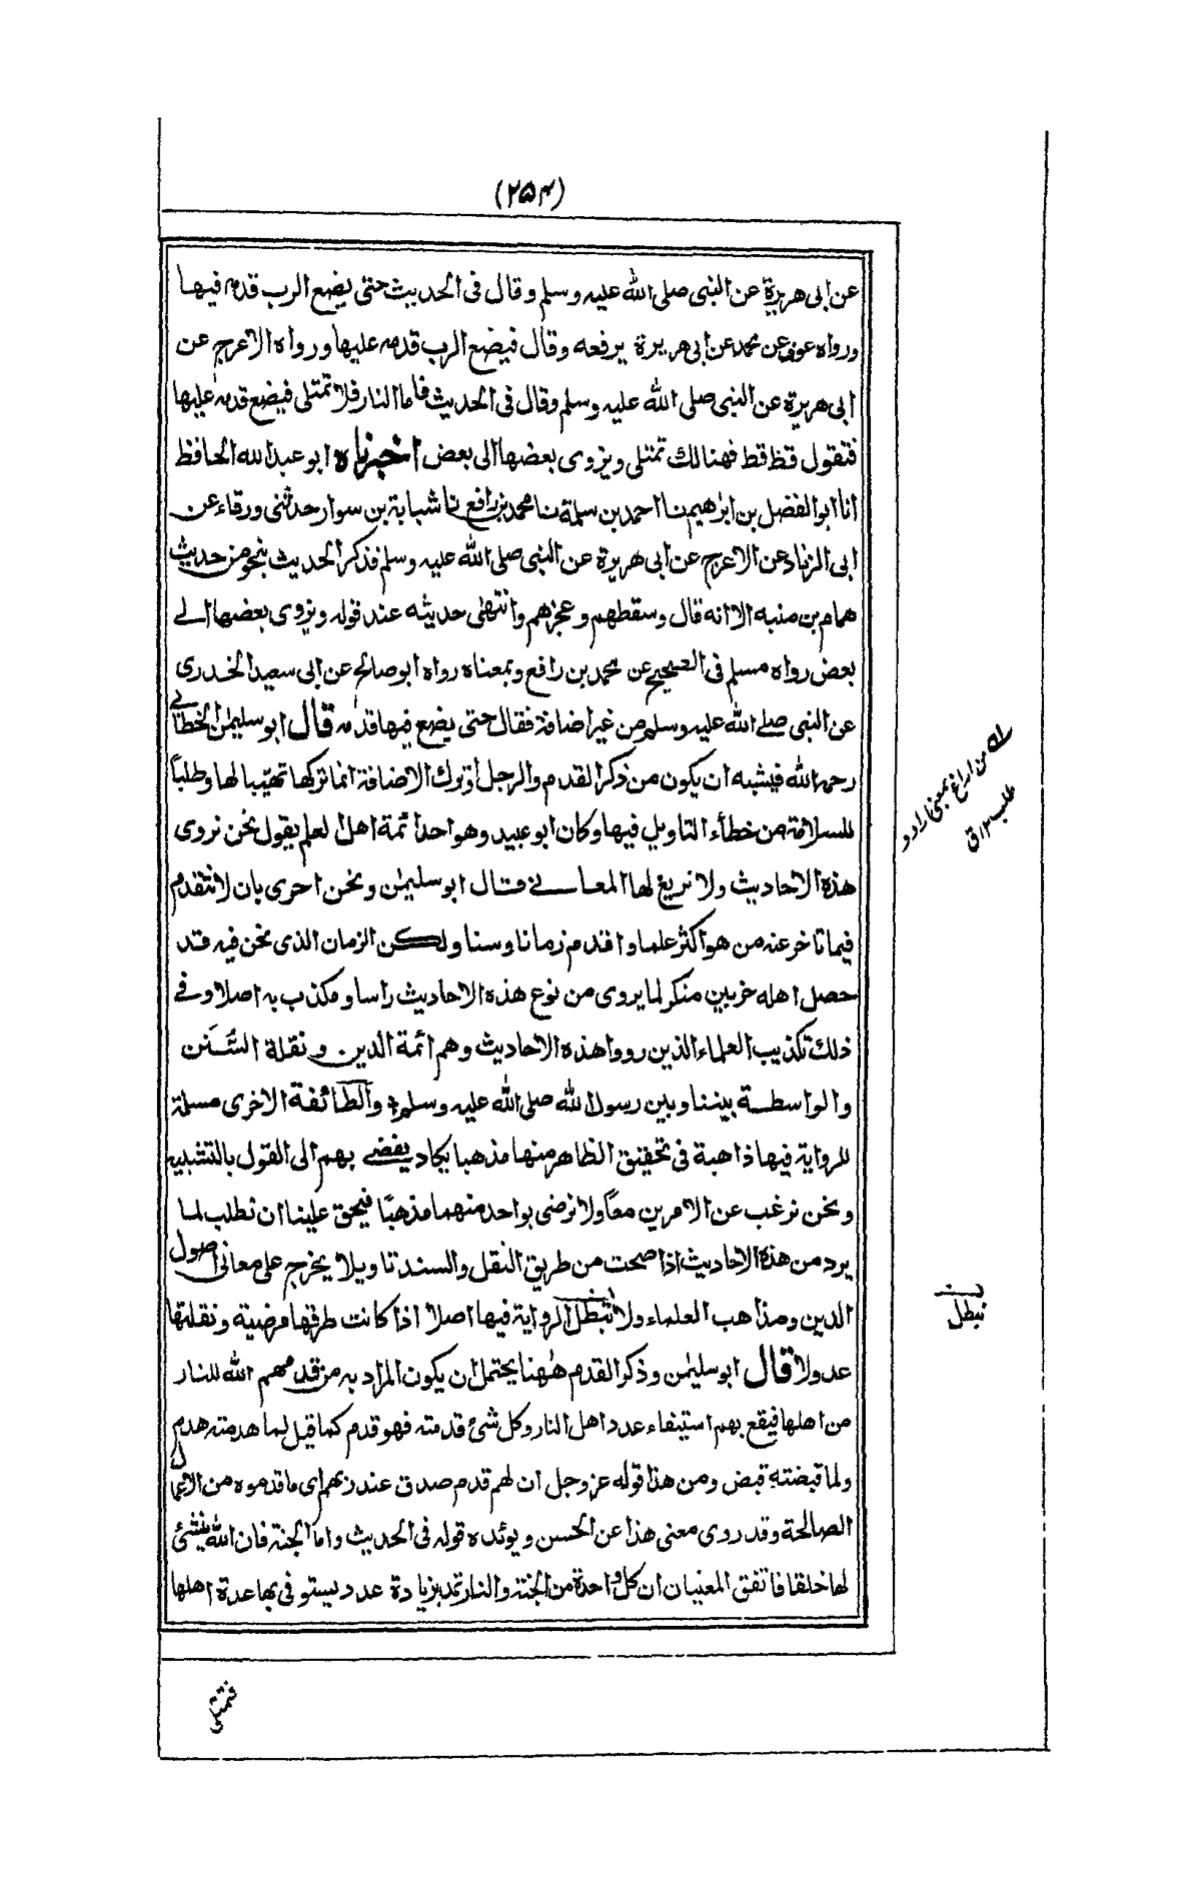 (۲۵۴)
عن ابى هريرة عن النبى صلى الله عليه وسلم وقال فى الحديث حتى يضع الرب قدمه فيها
ورواه عوف عن محمد عن ابى هريرة يرفعه وقال فيضع الرب قدمه عليها ورواه الاعرج عن
ابى هريرة عن النبى صلى الله عليه وسلم وقال فى الحديث فاما النار فلا تمتلى فيضع قدمه عليها
فتقول قط قط فهنالك تمتلى ويزوى بعضها الى بعض اخبرناه ابو عبد الله الحافظ
انا ابو الفضل بن ابرٰهيم نا احمد بن سلمة نا محمد بن رافع نا شبابة بن سوار حدثنى ورقاء عن
ابى الزناد عن الاعرج عن ابى هريرة عن النبى صلى الله عليه وسلم فذكر الحديث بنحو من حديث
همام بن منبه الا انه قال وسقطهم وعجزهم وانتهٰى حديثه عند قوله ويزوى بعضها الى
بعض رواه مسلم فى الصحيح عن محمد بن رافع وبمعناه رواه ابو صالح عن ابى سعيد الخدرى
عن النبى صلى الله عليه وسلم من غير اضافة فقال حتى يضع فيها قدمه قال ابو سليمٰن الخطابى
رحمه الله فيشبه ان يكون من ذكر القدم والرجل او ترك الاضافة انما تركها تهيبا لها وطلبًا
للسلامة من خطأء التاويل فيها وكان ابو عبيد وهو احد ائمة اهل العلم يقول نحن نروى
هذه الاحاديث ولا نريغ لها المعانى قال ابو سليمٰن ونحن احرى بان لا نتقدم
فيما تاخر عنه من هو اكثر علما واقدم زمانا وسنا ولكن الزمان الذى نحن فيه قد
حصل اهله حزبين منكر لما يروى من نوع هذه الاحاديث راسا ومكذب به اصلا وفى
ذلك تكذيب العلماء الذين رووا هذه الاحاديث وهم ائمة الدين ونقلة السُّنَن
والواسطة بيننا وبين رسول الله صلى الله عليه وسلم والطائفة الاخرى مسلمة
للرواية فيها ذاهبة فى تحقيق الظاهر منها مذهبا يكاد يفضى بهم الى القول بالتشبيه
ونحن نرغب عن الامرين معًا ولا نرضى بواحد منهما مذهبًا فيحق علينا ان نطلب لما
يرد من هذه الاحاديث اذا صحت من طريق النقل والسند تاويلا يخرج على معانى اصول
الدين ومذاهب العلماء ولا تبطل الرواية فيها اصلا اذا كانت طرقها مرضية ونقلتها
عدولا قال ابو سليمٰن وذكر القدم هٰهنا يحتمل ان يكون المراد به من قدمهم الله للنار
من اهلها فيقع بهم استيفاء عدد اهل النار وكل شئ قدمته فهو قدم كما قيل لما هدمته هدم
ولما قبضته قبض ومن هذا قوله عز وجل ان لهم قدم صدق عند ربهم اى ما قدموه من الاعمال
الصالحة وقد روى معنى هذا عن الحسن ويؤيده قوله فى الحديث واما الجنة فان الله ينشئ
لها خلقا فاتفق المعنيان ان كل واحدة من الجنة والنار تمد بزيادة عدد يستوفى بها عدة اهلها
من اراغ بمعنى اراد و
طلب ۱۲ ق
نبطل
فتمتلى